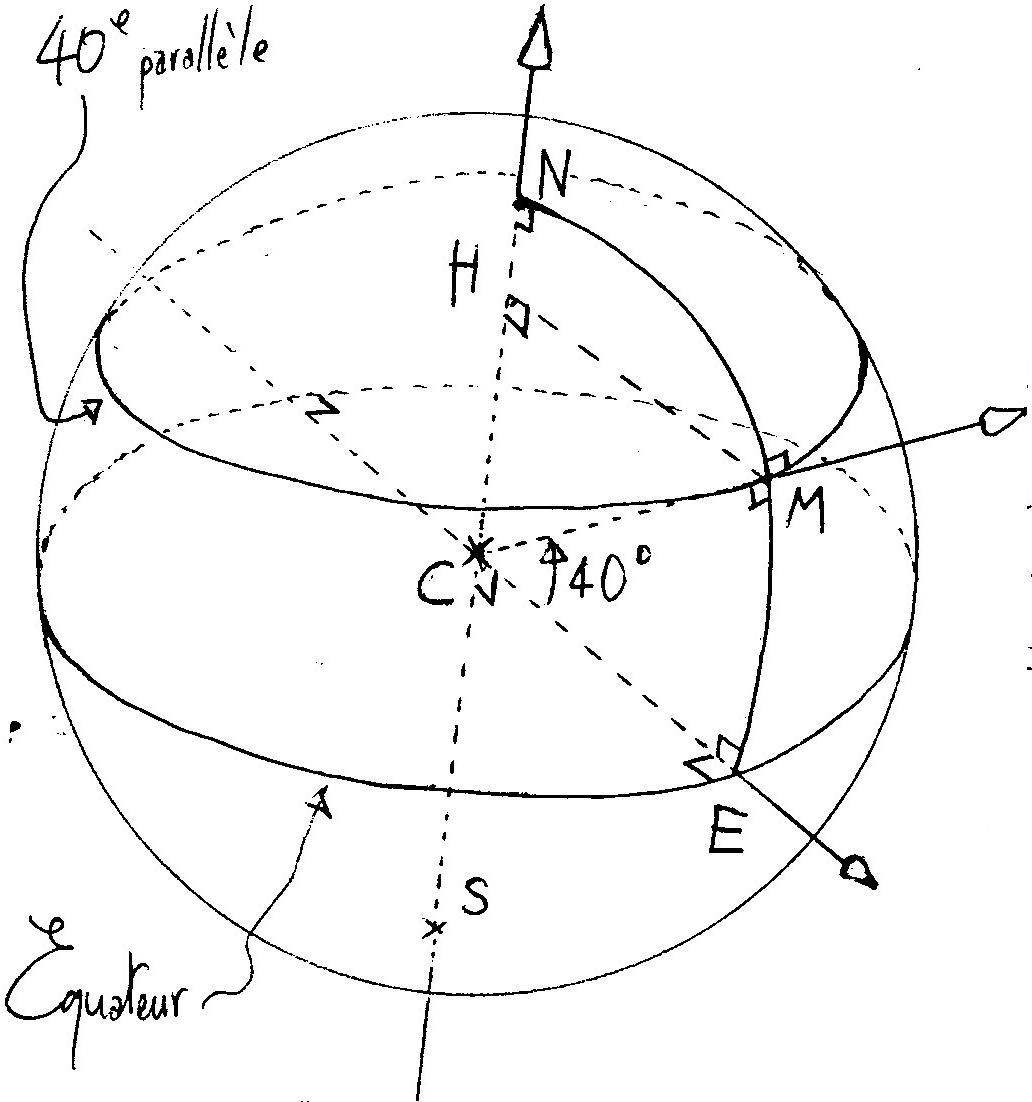 40e parallèle
N
H
M
C
40°
E
S
Équateur